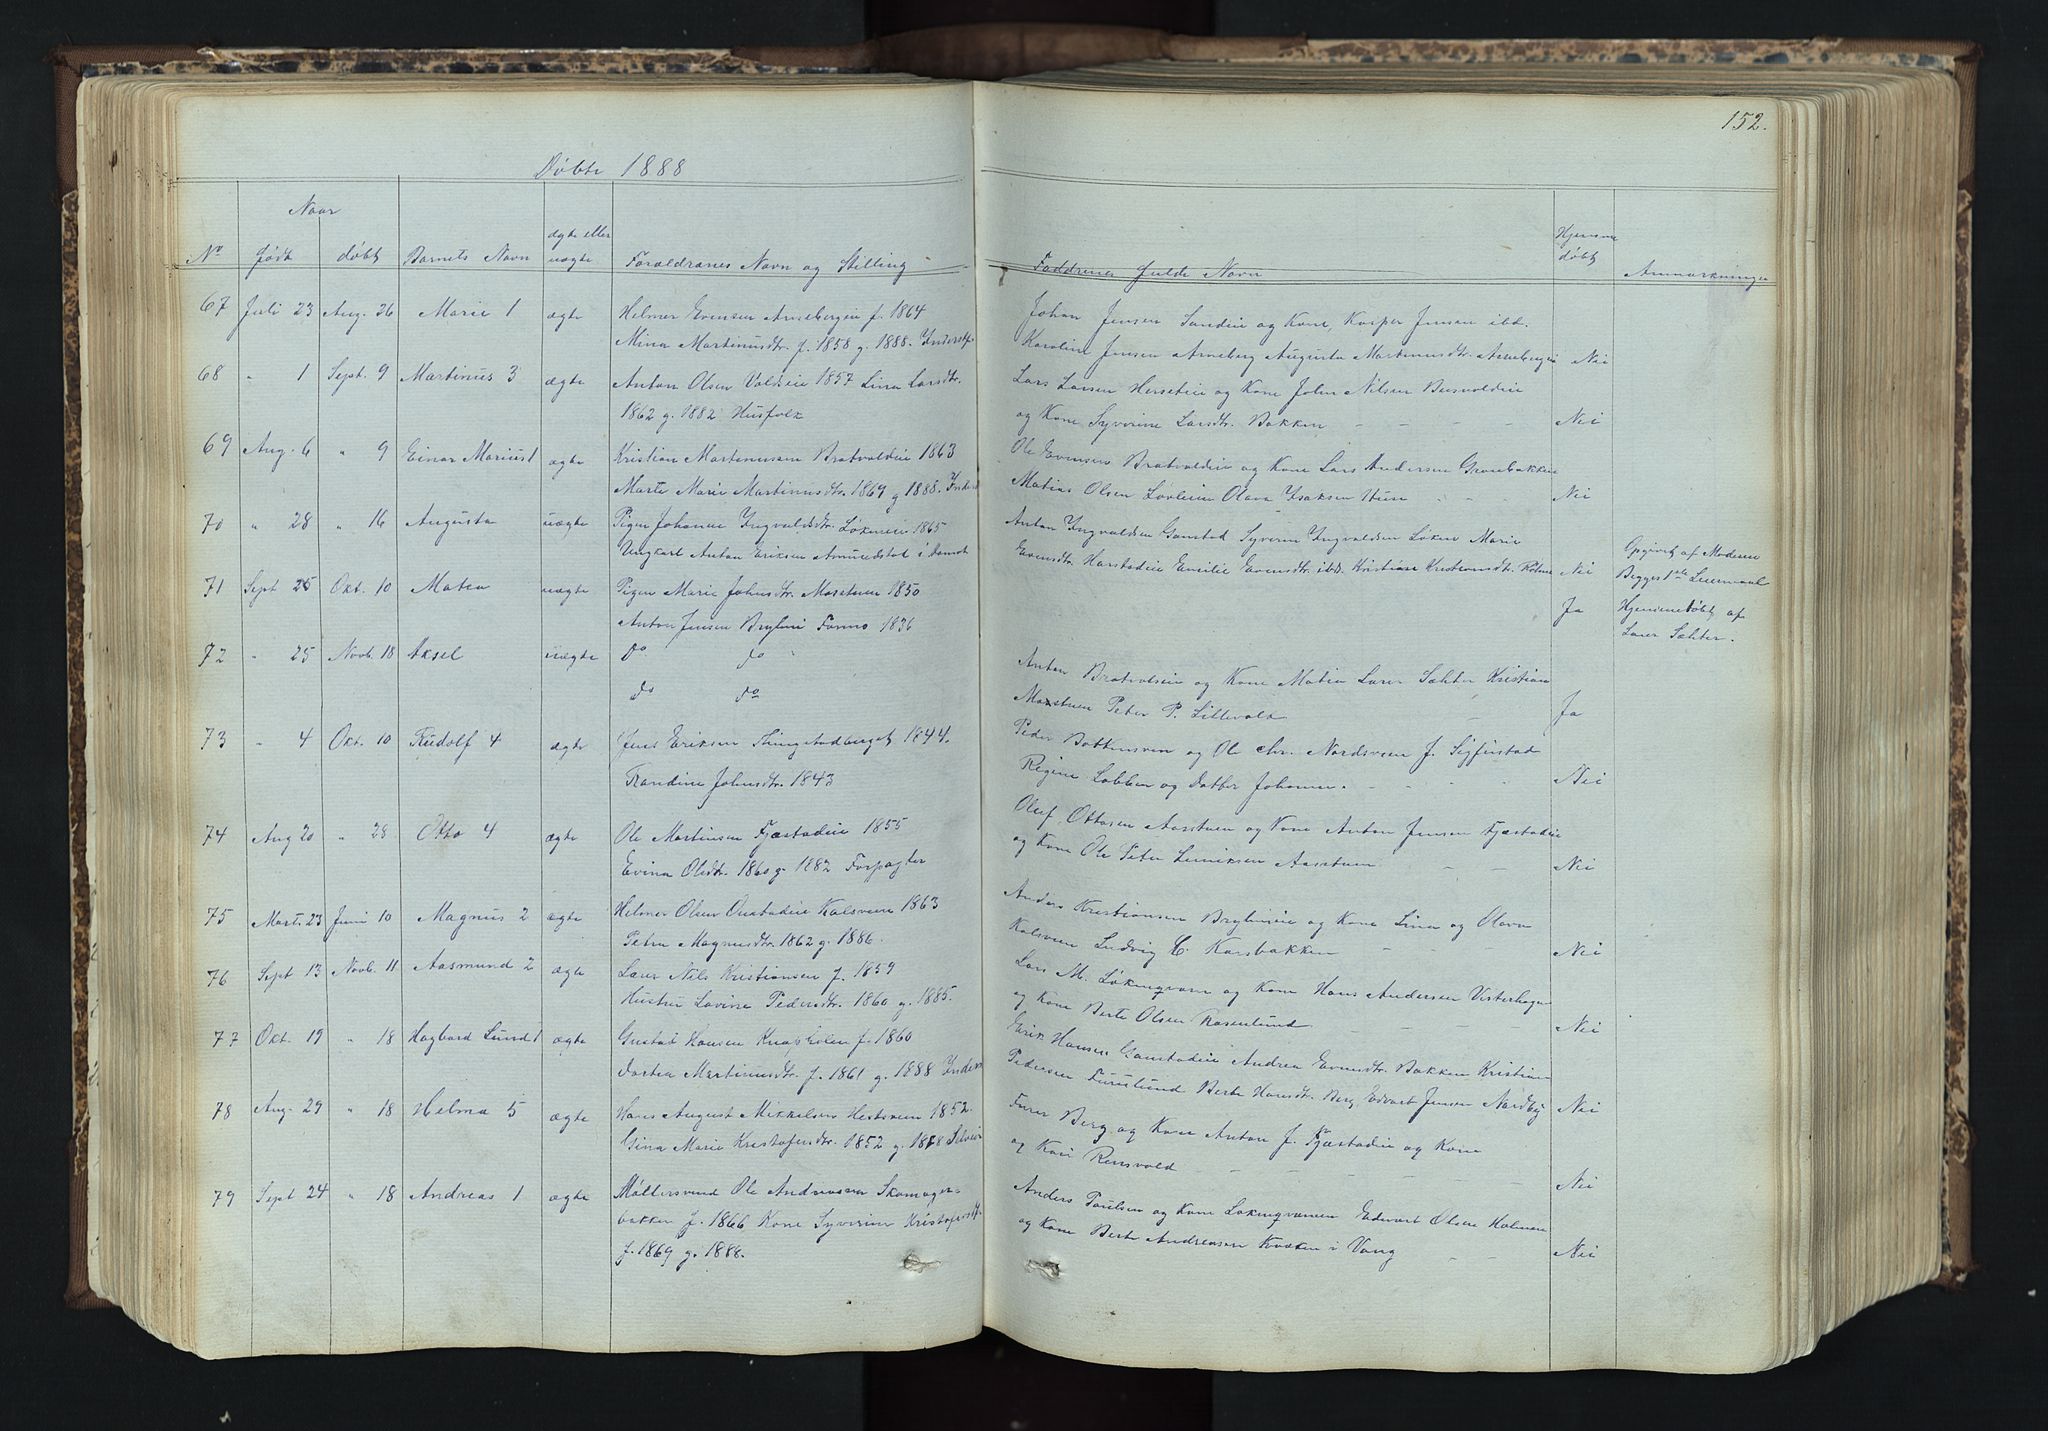 152.
Døbte 1888
Naar
No født døbt Barnets Navn ægte eller uægte Forældrenes Navn og Stilling
Faddrenes fulde Navn Hjemme døbt Anmærkninger
67 Juli 23 Aug. 26 Marie 1 ægte Helmer Evensen Arnebergeie f. 1864
Mina Martinusdtr. f. 1858 g. 1888. Inderst
Johan Jensen Sandeie og Kone, Kasper Jensen ibd.
Karoline Jensen Arneberg Augusta Martinusdtr. Arnebergeie Nei
68 " 1 Sept. 9 Martinus 3 ægte Anton Olsen Voldeie 1857 Lina Larsdtr.
1862 g. 1882 Husfolk
Lars Larsen Herseteie og Kone John Nilsen
og Kone Syverine Larsdtr. Bakken Nei
69 Aug. 6 " 9 Einar Marius 1 ægte Kristian Martinussen Bratvoldeie 1863
Marte Marie Martinusdtr. 1869 g 1888. Inders
Ole Evensen Bratvoldeie og Kone Lars Andersen Gronebakken
Matias Olsen Løvlien Olava Isaksen Nei
70 " 28 " 16 Augusta uægte Pigen Johanne Ingvaldsdtr. Løkeneie 1865
Ungkarl Anton Eriksen Amundstad i Aamot
Anton Ingvaldsen Gaustad Syverin Ingvaldsen Løken Marie
Evensdtr. Harstadeie Emilie Evensdtr. ibd. Kristian Nei
Opgivet af Moderen
Begges 1ste Leiermaal
71 Sept 25 Okt. 10 Matea uægte Pigen Marie Johnsdtr. Mosstuen 1850
Anton Jensen Bryhni Fonno 1836
Ja
Hjemmedøbt af
Lærer Sæhter.
72 " 25 Novb. 18 Aksel uægte do do
do do
Anton Bratvoldeie og Kone Matia Lærer Sæhter Kristian
Mosstuen Peter P. Lillevold Ja
73 " 4 Okt. 10 Rudolf 4 ægte Jens Eriksen Thingstadberget 1844.
Randine Johnsdtr. 1843
Peder Bottensveen og Ole Chr. Nordsveen J. Sigfustad
Regine Lobben og Datter Johanne. Nei
74 Aug 20 " 28 Otto 4 ægte Ole Martinsen Fjæstadeie 1855
Evina Olsdtr. 1860 g. 1882 Forpagter
Oluf Ottosen Aasstuen og Kone Anton Jensen Fjæstadeie
og Kone Ole Peter Aasstuen Nei
75 Marts 23 Juni 10 Magnus 2 ægte Helmer Olsen Kalsveen 1863
Petra Magnusdtr. 1862 g. 1886.
Anders Kristiansen Bryhnieie og Kone Lina og Olava
Kalsveen Ludvig C. Karsbakken Nei
76 Sept 13 Novb. 11 Aasmund 2 ægte Lærer Nils Kristiansen f. 1859
Hustru Lovine Pedersdtr. 1860 g. 1885.
Lars M. Løkenqværn og Kone Hans Andersen Vesterhagen
og Kone Berte Olsen Rosenlund Nei
77 Okt. 19 " 18 Hagbard Lund 1 ægte Gustav Hansen Knapholen f. 1860
Dortea Martinusdtr. f. 1861 g. 1888 Inders
Erik Hansen Gaustadeie Andrea Evensdtr. Bakken Kristian
Pedersen Furulund Berte Hansdtr. Berg Edvart Jensen Nordby Nei
78 Aug. 29 " 18 Helma 5 ægte Hans August Mikkelsen Hestsveen 1852.
Gina Marie Kristofersdtr. 1852 g. 1878 Selveier
Furer Berg og Kone Anton J. Fjæstadeie og Kone
og Kari Rensvold Nei
79 Sept 24 " 18 Andreas 1 ægte Møllersvend Ole Andreassen Skomager-
bakken f. 1866 Kone Syverine Kristofersdtr.
f. 1869 g. 1888.
Anders Paulsen og Kone Løkenqværnen Edvart Olsen Holmen
og Kone Berte Andreassen Kvæken i Vang Nei